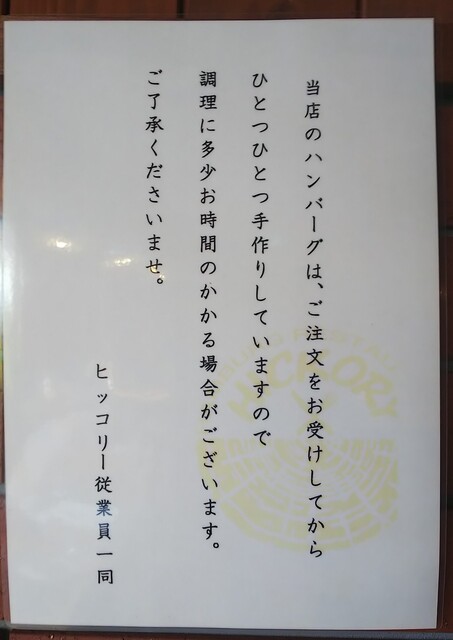 当店のハンバーグは、ご注文をお受けしてから
ひとつひとつ手作りしていますので
調理に多少お時間のかかる場合がございます。
ご了承くださいませ。
ヒッコリー従業員一同
HICKORY